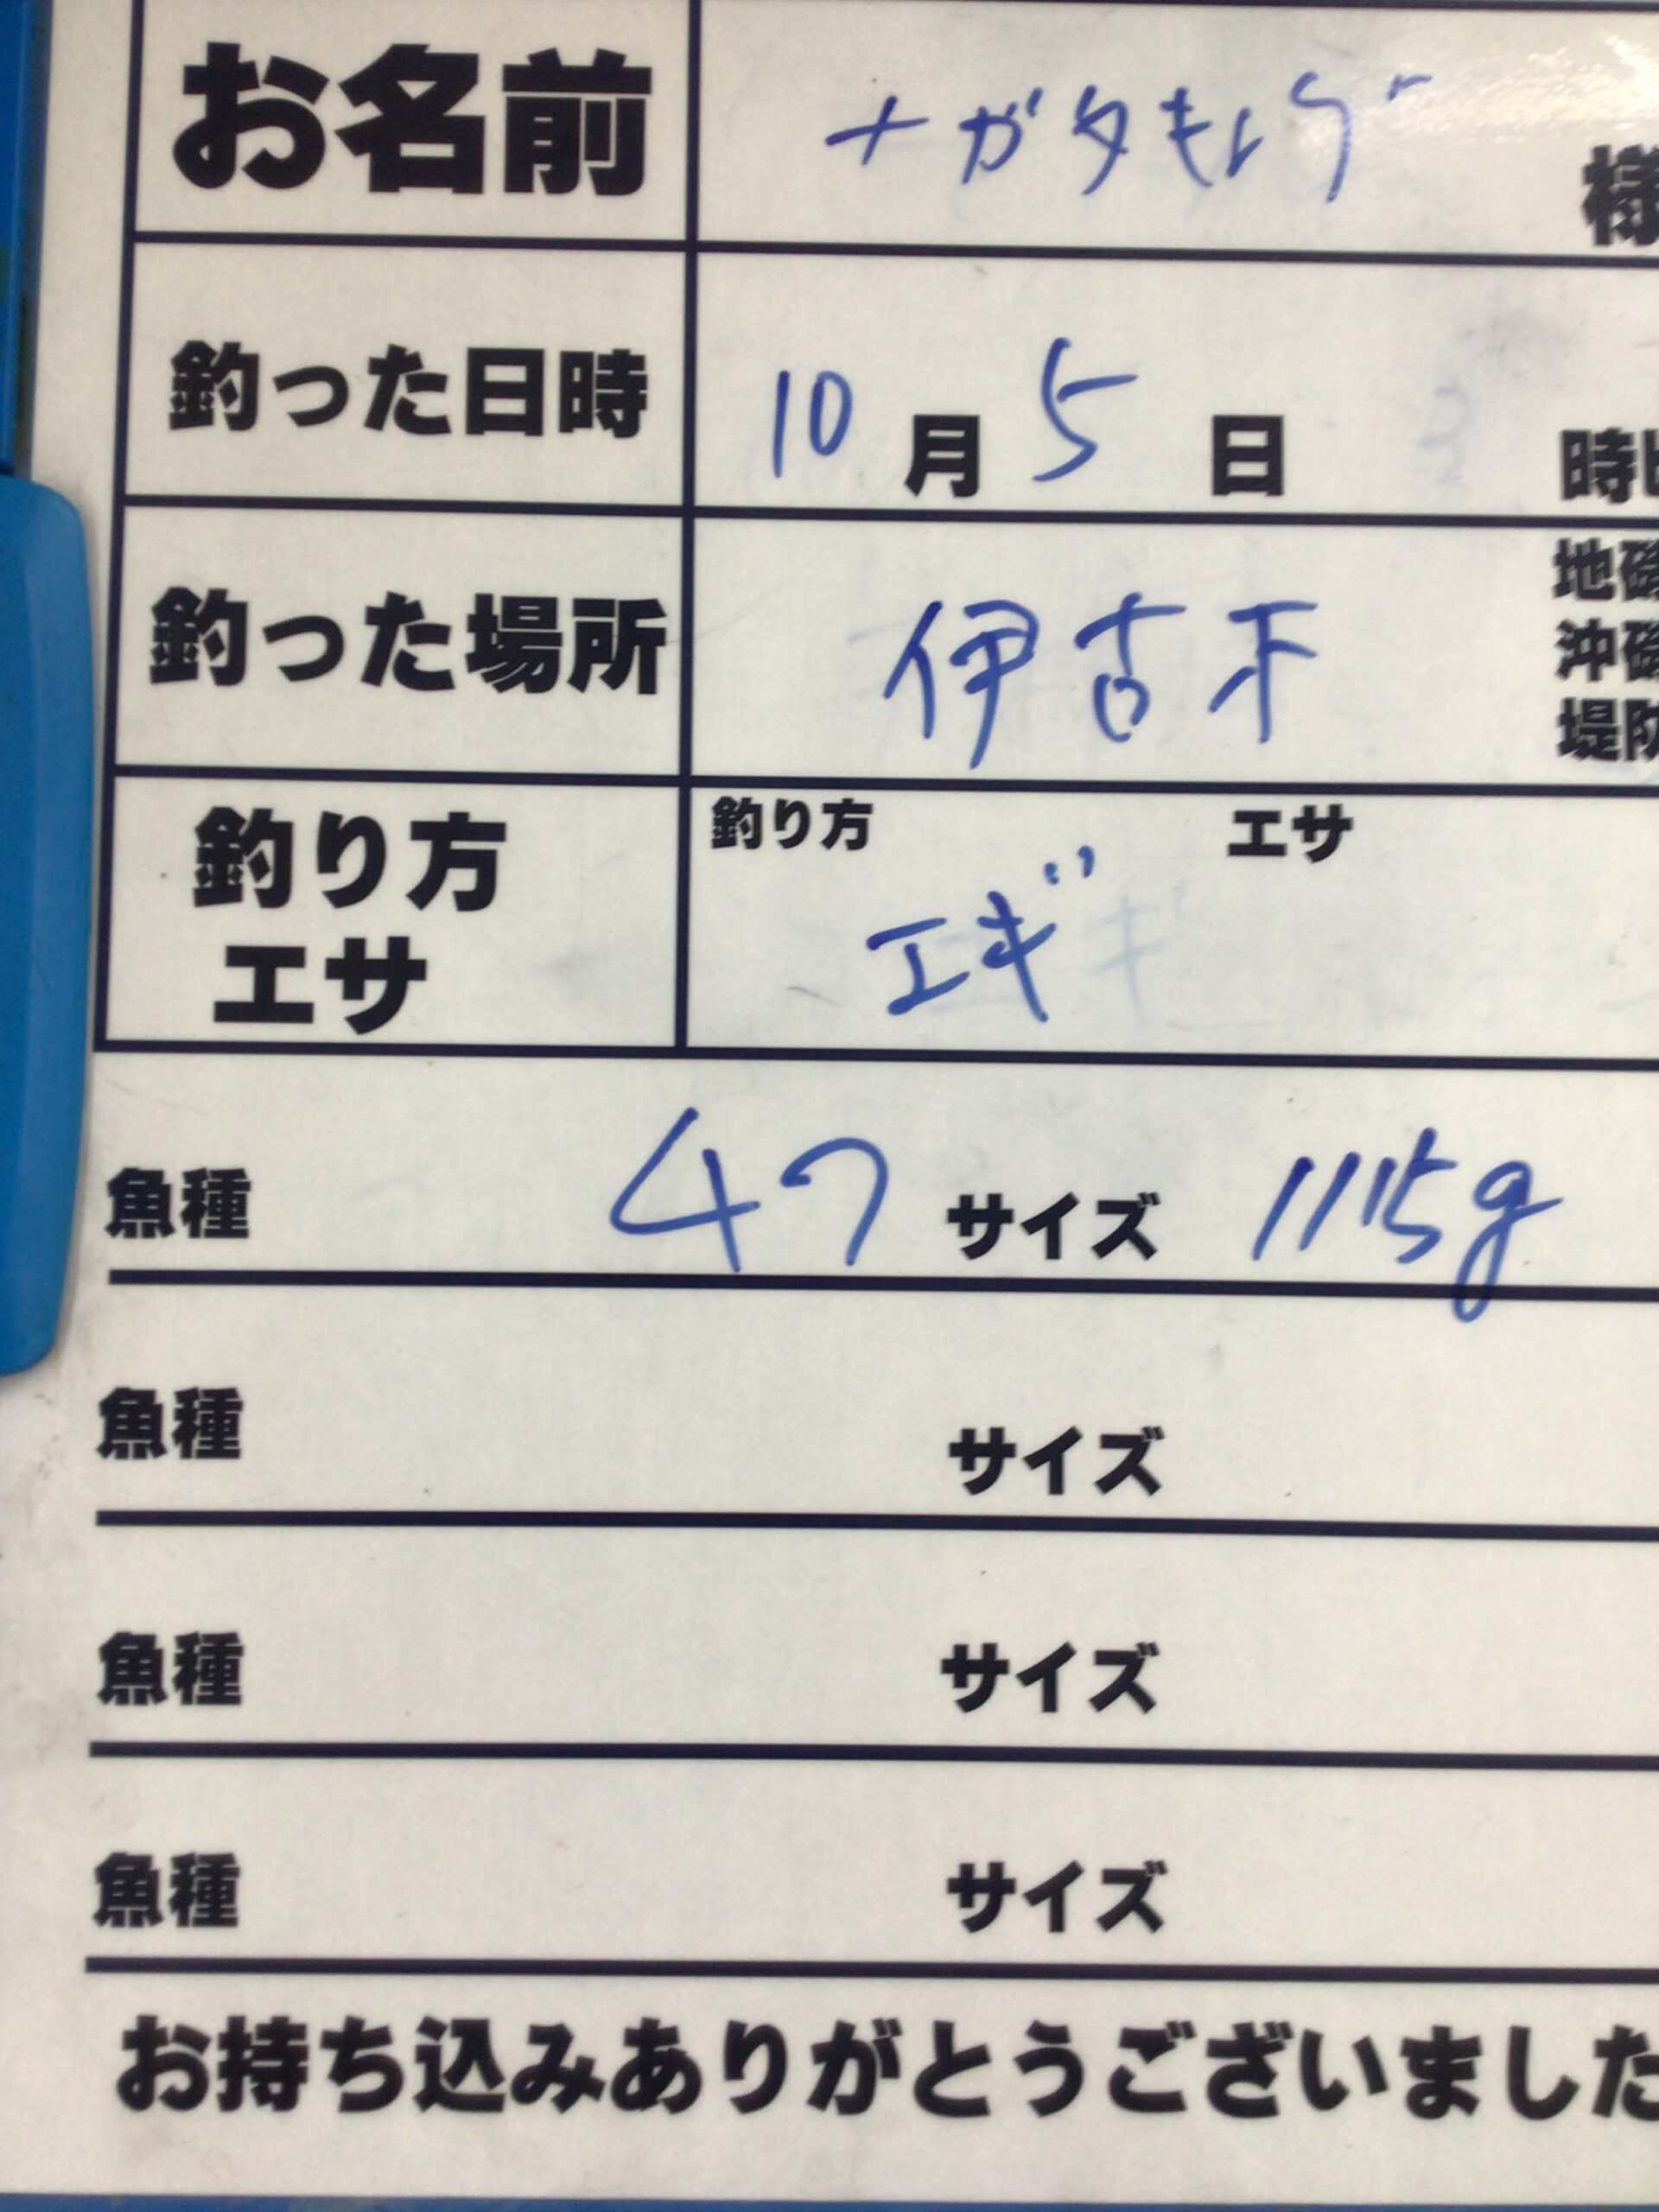 お名前 ナガタキ 様
釣った日時 10月5日 時
釣った場所 伊古木
地磯
沖磯
堤防
釣り方 エサ
釣り方 エサ
エギ
魚種 47 サイズ 1115g
魚種 サイズ
魚種 サイズ
魚種 サイズ
お持ち込みありがとうございました